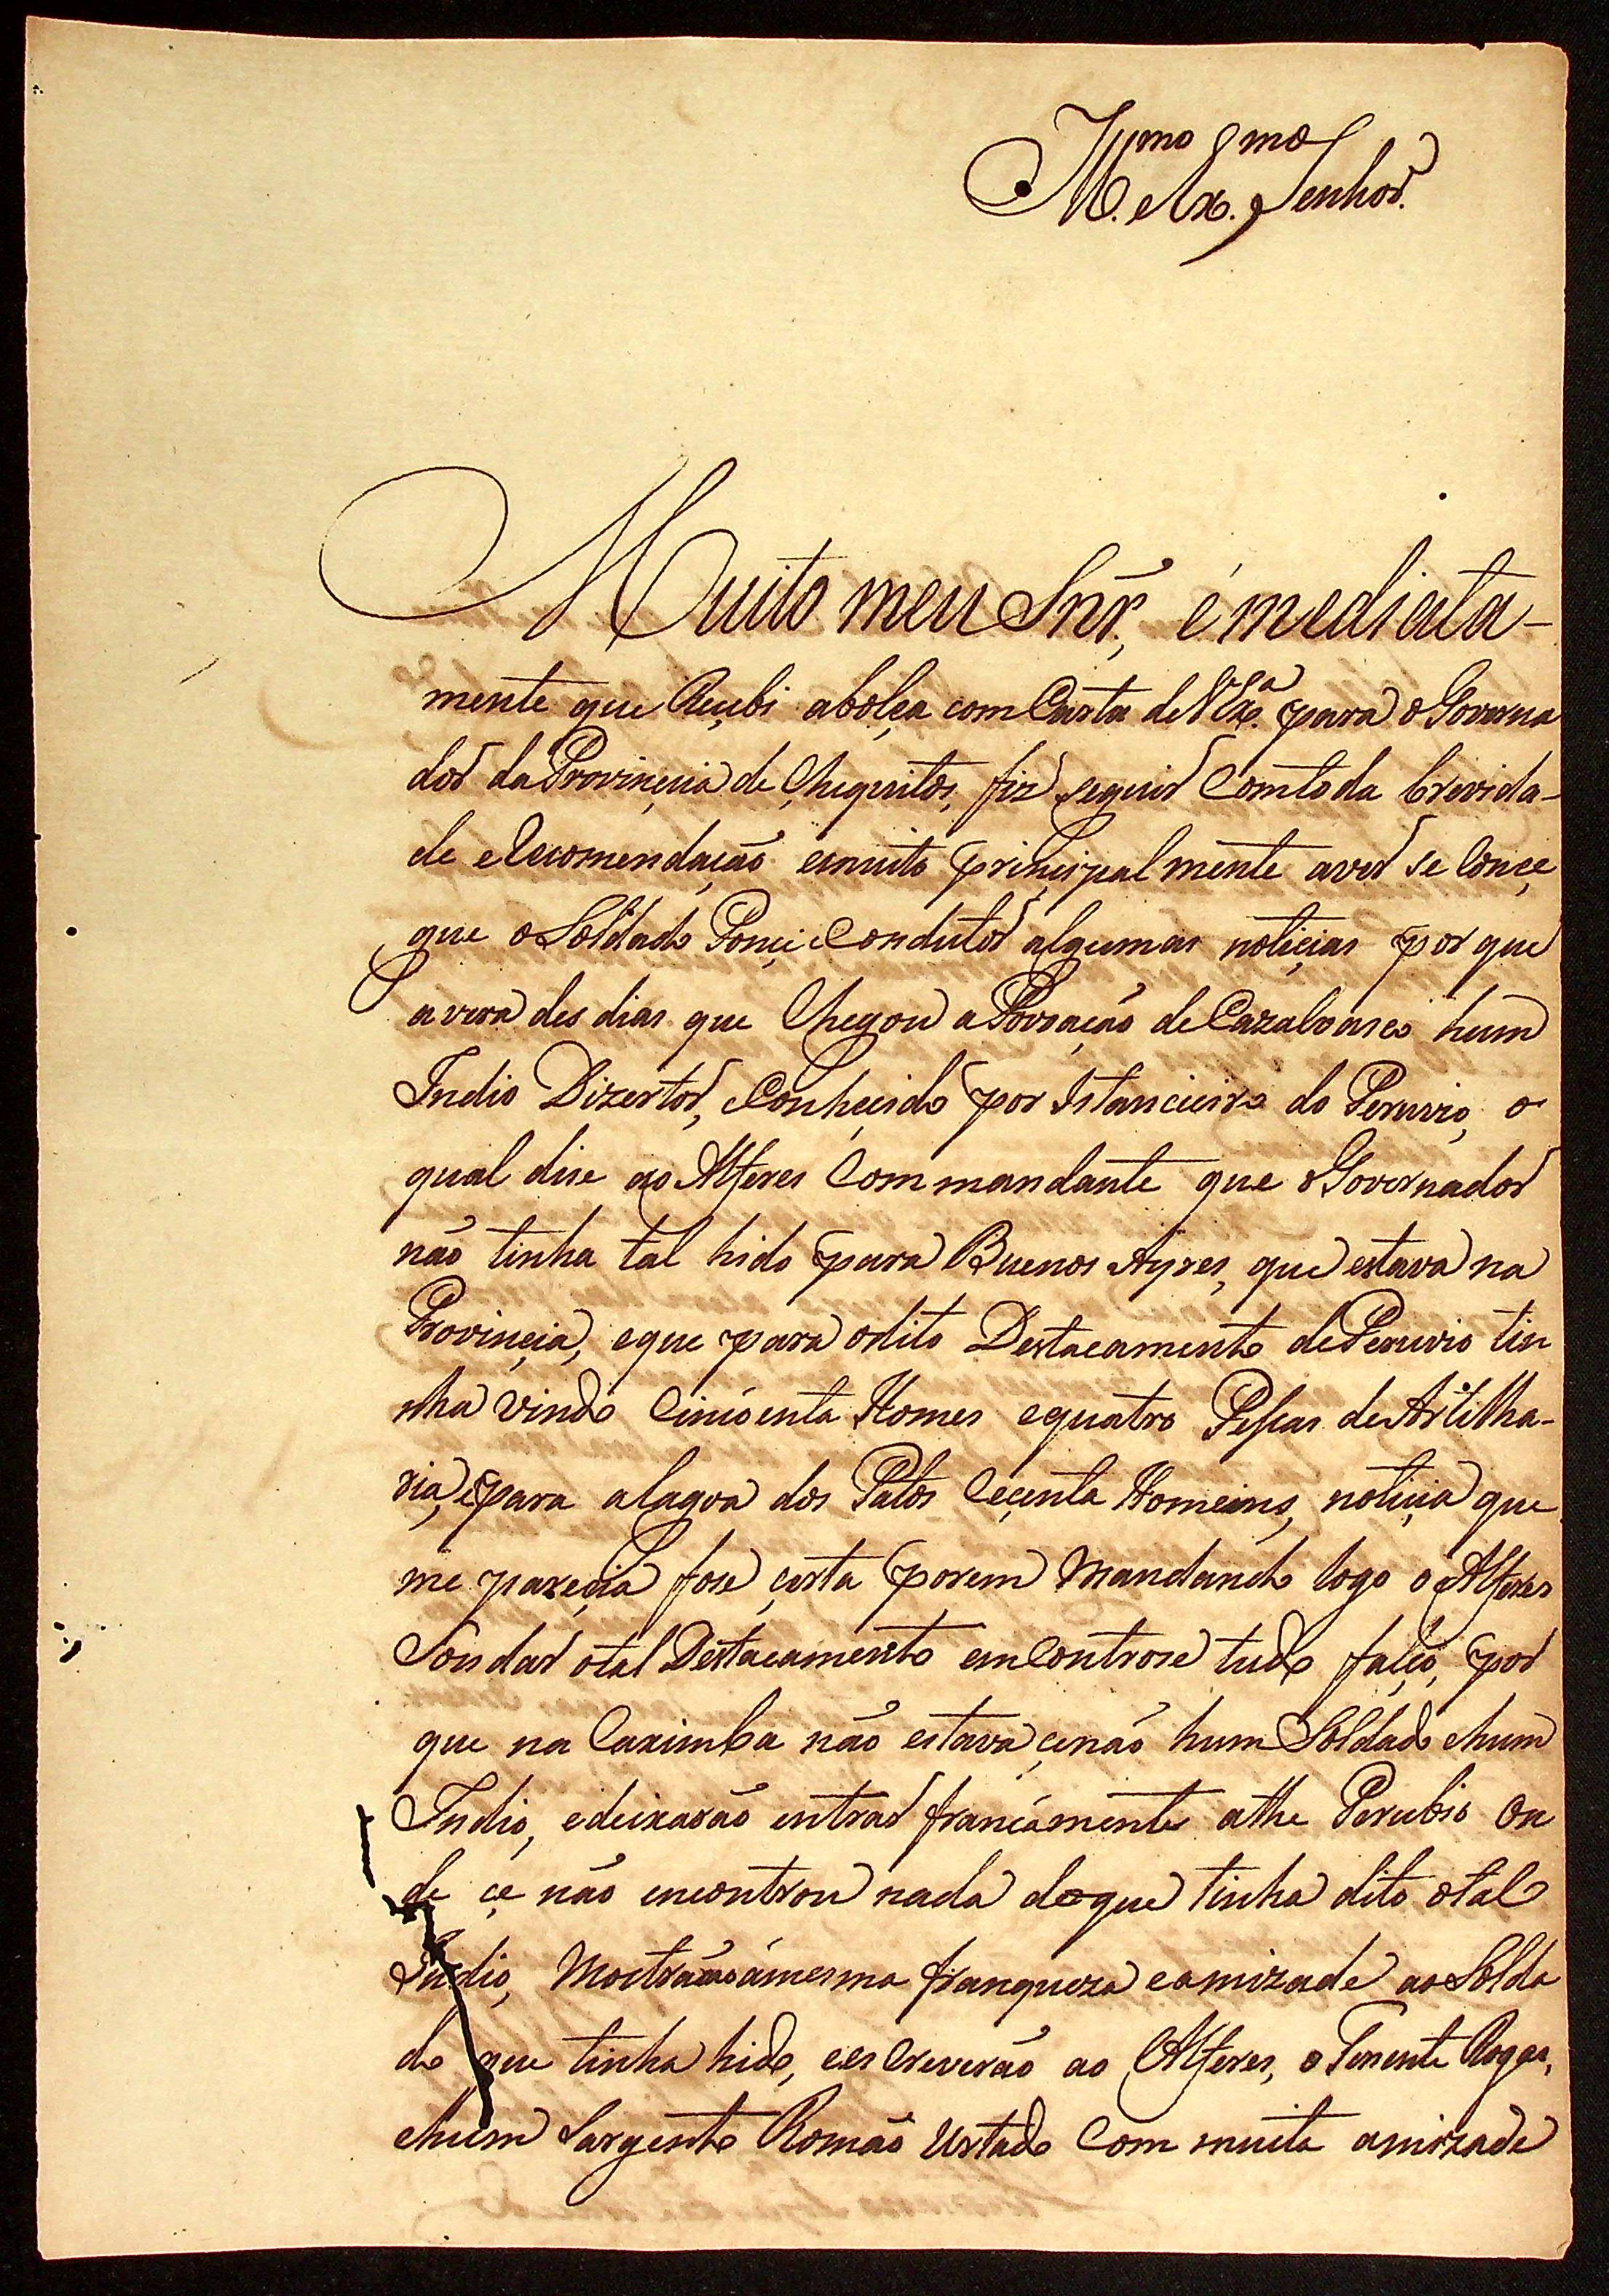 Ill.mo e Ex.mo Senhor.
Muito meu Snr., emediata-
mente que Reçebi abolça com Carta de V.Ex.a para o Governa
dor da Provinçia de Chequitos, fiz seguir Com toda brevida-
de e Recomendação emuito prinçipal mente aver se Conçe
gue o Soldado Ponçi Condutor algumas notiçias por que
avera des dias que Chegou a Povoação de Cazalvasco hum
Indio Dizertor, Conheçido por Istancieiro do Peruvio, o
qual dise ao Alferes Commandante que o Governador
não tinha tal hido para Buenos Ayres, que estava na
Provinçia, eque para odito Destacamento de Peruvio tin
nha vindo Cincoenta Homes equatro Pessas de Artilha-
ria, epara alagoa dos Patos Ceçenta Homeins, notiçia que
me pareçia fose çerta porem Mandando logo o Alferes
Sondar otal Destacamento emControse tudo falço, por
que na Caximba não estava çenão hum Soldado ehum
Indio, edeixarão entrar francamente athe Perubio On
de çe não encontrou nada doque tinha dito otal
Indio, Mostrarão amesma franqueza eamizade ao Solda
do que tinha hido, eesCreverão ao Alferes, o Tenente
ehum Sargento Romão Urtado Com muita amizade